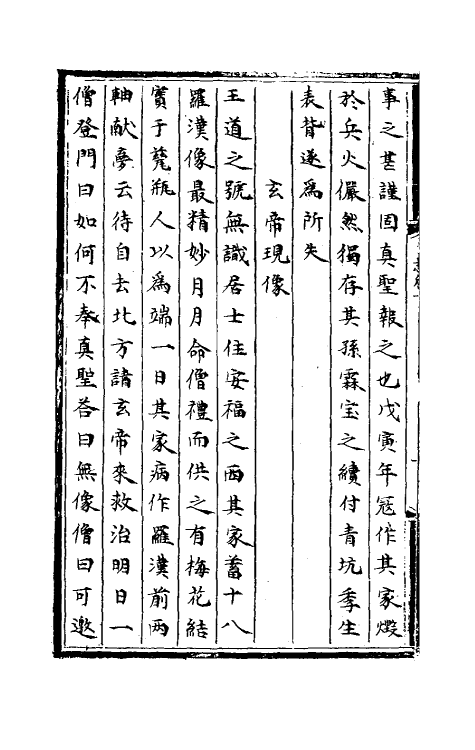 事之甚謹因真聖報之也戊寅年冦作其家燬
於兵火儼然獨存其孫霖宝之續付青坑季生
表背遂為所失
玄帝現像
王道之號無識居士住安福之西其家蓄十八
羅漢像最精妙月月命僧禮而供之有梅花結
實于甆瓶人以為端一日其家病作羅漢前兩
軸献夢云待自去北方請玄帝來救治明日一
僧登門曰如何不奉真聖荅曰無像僧曰可邀